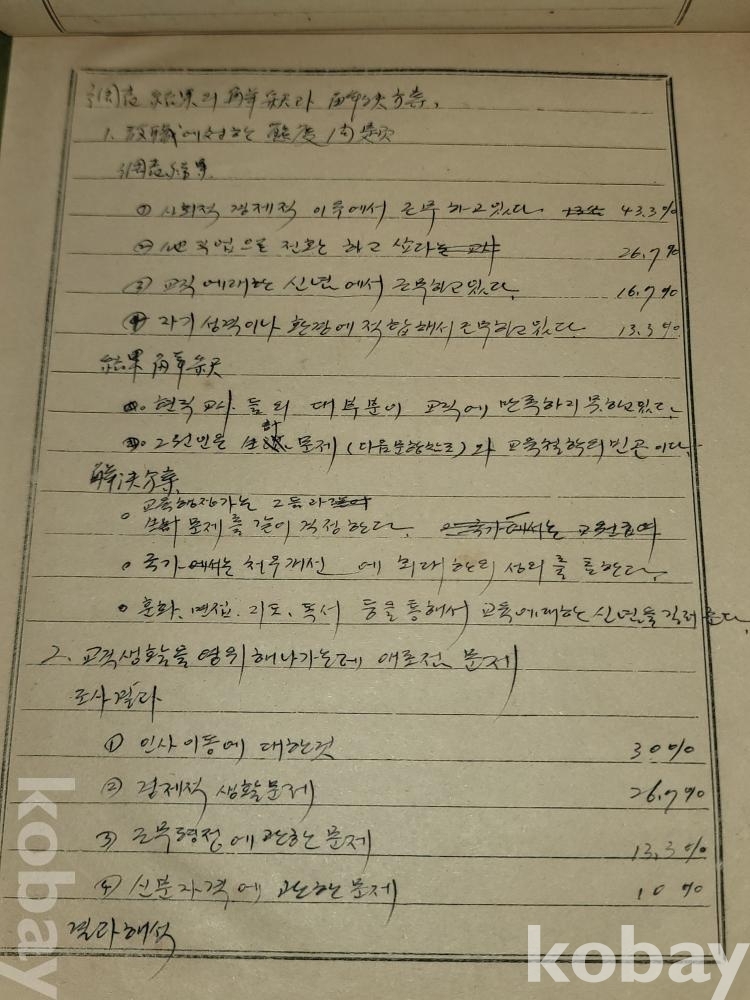 調査 結果의 解釋과 解決方案.
1. 敎職에 対하는 態度 問題
調査結果
① 사회적 경제적 이유에서 근무하고있다 43.3%
② 他직업으로 전환 하고 싶다 26.7%
③ 교직에대한 신념에서 근무하고있다. 16.7%
④ 자기성격이나 환경에 적합해서 근무하고있다. 13.3%
結果 解釋
현직교사 들의 대부분이 교직에 만족하지 못하고있다.
그원인은 生計 문제 (다음문항참조)와 교육철학의빈곤이다.
解決方案.
교육행정가는 그들과
문제를 같이 걱정한다.
국가에서는 처우개선 에 최대한의 성의를 다한다.
훈화, 면접, 지도, 독서 등을 통해서 교육에대한 신념을 길러 준다.
2. 교직생활을 영위해나가는데 애로점 문제
조사결과
① 인사이동에 대한것 30%
② 경제적 생활문제 26.7%
③ 근무평정에 관한 문제 13.3%
④ 신분자격에 관한 문제 10%
결과해석
kobay
kobay
kobay